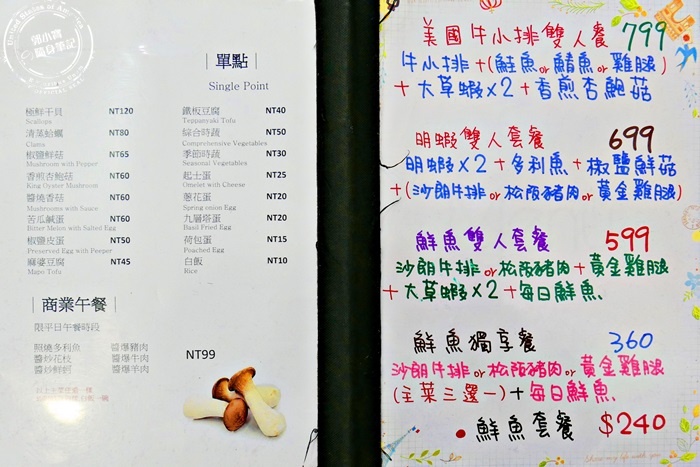 郭小寶
隨身筆記
單點
Single Point
極鮮干貝 NT120
Scallops
清蒸蛤蠣 NT80
Clams
椒鹽鮮菇 NT65
Mushroom with Pepper
香煎杏鮑菇 NT60
King Oyster Mushroom
醬燒香菇 NT60
Mushrooms with Sauce
苦瓜鹹蛋 NT60
Bitter Melon with Salted Egg
椒鹽皮蛋 NT50
Preserved Egg with Peeper
麻婆豆腐 NT45
Mapo Tofu
鐵板豆腐 NT40
Teppanyaki Tofu
綜合時蔬 NT50
Comprehensive Vegetables
季節時蔬 NT30
Seasonal Vegetables
起士蛋 NT25
Omelet with Cheese
蔥花蛋 NT20
Spring onion Egg
九層塔蛋 NT20
Basil Fried Egg
荷包蛋 NT15
Poached Egg
白飯 NT10
Rice
商業午餐
限平日午餐時段
照燒多利魚 醬爆豬肉
醬炒花枝 醬爆牛肉
醬炒鮮蚵 醬爆羊肉
NT99
美國牛小排雙人餐 799
牛小排+(鮭魚or鯖魚or雞腿)
+大草蝦×2+香煎杏鮑菇
明蝦雙人套餐 699
明蝦×2+多利魚+椒鹽鮮菇
+(沙朗牛排or松阪豬肉or黃金雞腿)
鮮魚雙人套餐 599
沙朗牛排or松阪豬肉+黃金雞腿
+大草蝦×2+每日鮮魚
鮮魚獨享餐 360
沙朗牛排or松阪豬肉or黃金雞腿
(主菜三選一)+每日鮮魚
鮮魚套餐 $240